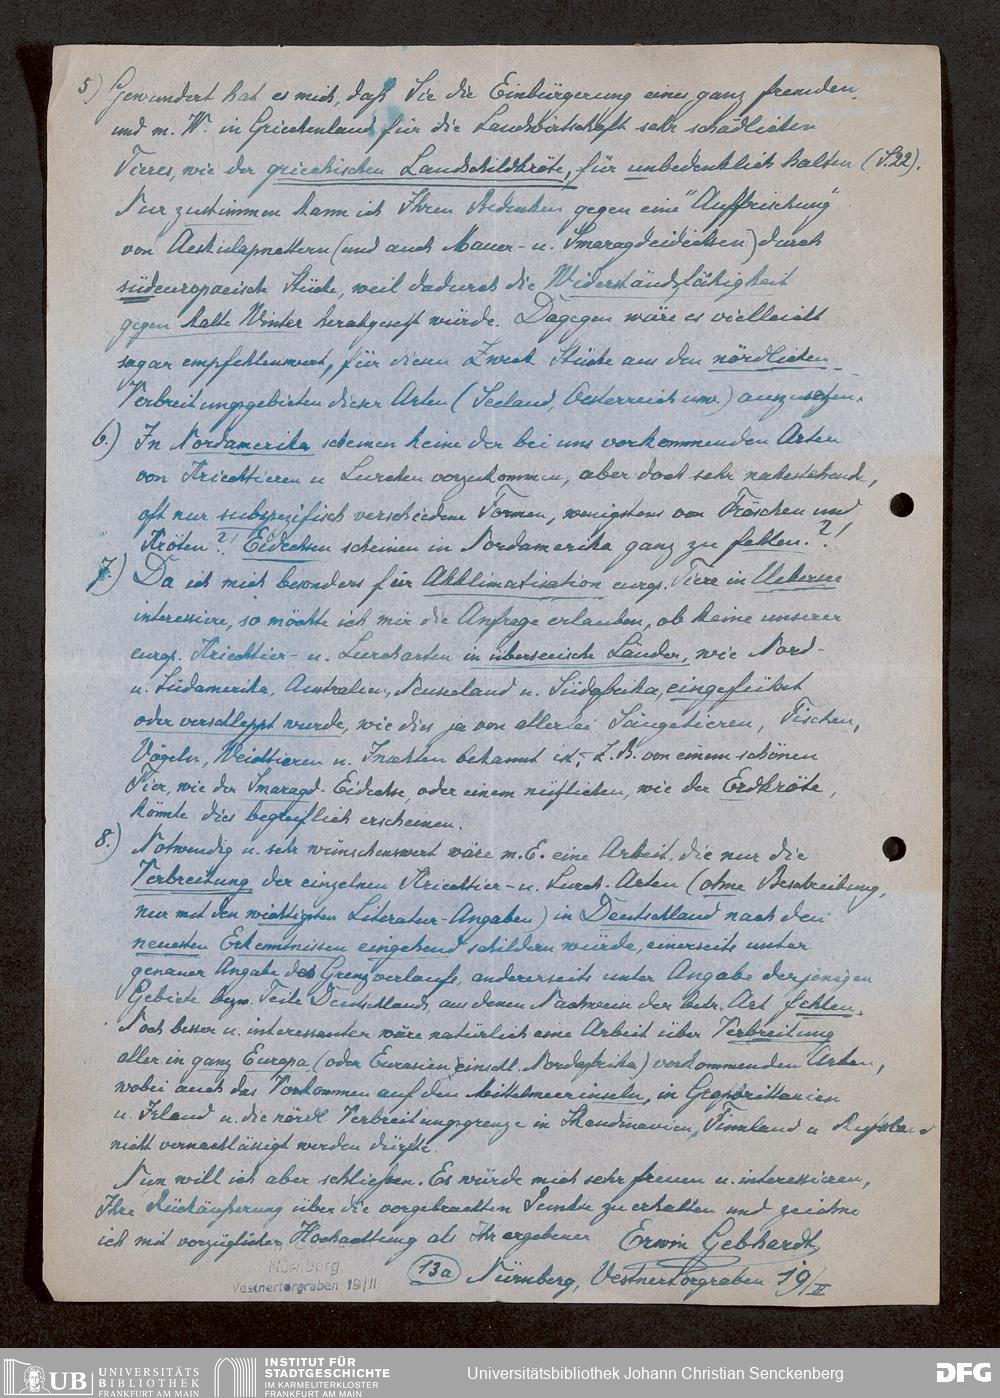 5) Gewundert hat es mich, daß Sie die Einbürgerung eines ganz fremden,
und m. W. in Griechenland für die Landwirtschaft sehr schädlichen
Tieres, wie der griechischen Landschildkröte, für unbedenklich halten (S.22).
Nur zustimmen kann ich Ihren Bedenken gegen eine "Auffrischung"
von Aeskulapnattern (und auch Mauer- u. Smaragdeidechsen) durch
südeuropaeische Stücke, weil dadurch die Widerstandsfähigkeit
gegen kalte Winter herabgesetzt würde. Dagegen wäre es vielleicht
sogar empfehlenswert, für diesen Zweck Stücke aus den nördlichen
Verbreitungsgebieten dieser Arten (Seeland, Oesterreich usw.) auszusetzen.
6.) In Nordamerika scheinen keine der bei uns vorkommenden Arten
von Kriechtieren u Lurchen vorzukommen, aber doch sehr nahestehende,
oft nur subspezifisch verschiedene Formen, wenigstens von Fröschen und
Kröten?! Eidechsen scheinen in Nordamerika ganz zu fehlen.?!
7.) Da ich mich besonders für Akklimatisation europ. Tiere in Uebersee
interessiere, so möchte ich mir die Anfrage erlauben, ob keine unserer
europ. Kriechtier- u. Lurcharten in überseeische Länder, wie Nord-
u. Südamerika, Australien, Neuseeland u. Südafrika, eingeführt
oder verschleppt wurde, wie dies ja von allerlei Säugetieren, Fischen,
Vögeln, Weichtieren u. Insekten bekannt ist; z. B. von einem schönen
Tier, wie der Smaragd-Eidechse, oder einem nützlichen, wie der Erdkröte,
könnte dies begreiflich erscheinen.
8.) Notwendig u. sehr wünschenswert wäre m. E. eine Arbeit, die nur die
Verbreitung der einzelnen Kriechtier- u. Lurch-Arten (ohne Beschreibung,
nur mit den wichtigsten Literatur-Angaben) in Deutschland nach den
neuesten Erkenntnissen eingehend schildern würde, einerseits unter
genauer Angabe des Grenzverlaufs, andererseits unter Angabe derjenigen
Gebiete bezw. Teile Deutschlands, aus denen Nachweise der betr. Art fehlen.
Noch besser u. interessanter wäre natürlich eine Arbeit über Verbreitung
aller in ganz Europa (oder Eurasien einschl. Nordafrika) vorkommenden Arten,
wobei auch das Vorkommen auf den Mittelmeerinseln, in Großbrittanien
u. Irland u. die nördl Verbreitungsgrenze in Skandinavien, Finnland u Rußland
nicht vernachlässigt werden dürfte.
Nun will ich aber schließen. Es würde mich sehr freuen u. interessieren,
Ihre Rückäußerung über die vorgebrachten Punkte zu erhalten und zeichne
ich mit vorzüglicher Hochachtung als Ihr ergebener Erwin Gebhardt,
Nürnberg
Vestnertorgraben 19/II
(13a) Nürnberg, Vestnertorgraben 19/II
UB UNIVERSITÄTS BIBLIOTHEK FRANKFURT AM MAIN
INSTITUT FÜR STADTGESCHICHTE IM KARMELITERKLOSTER FRANKFURT AM MAIN
Universitätsbibliothek Johann Christian Senckenberg
DFG